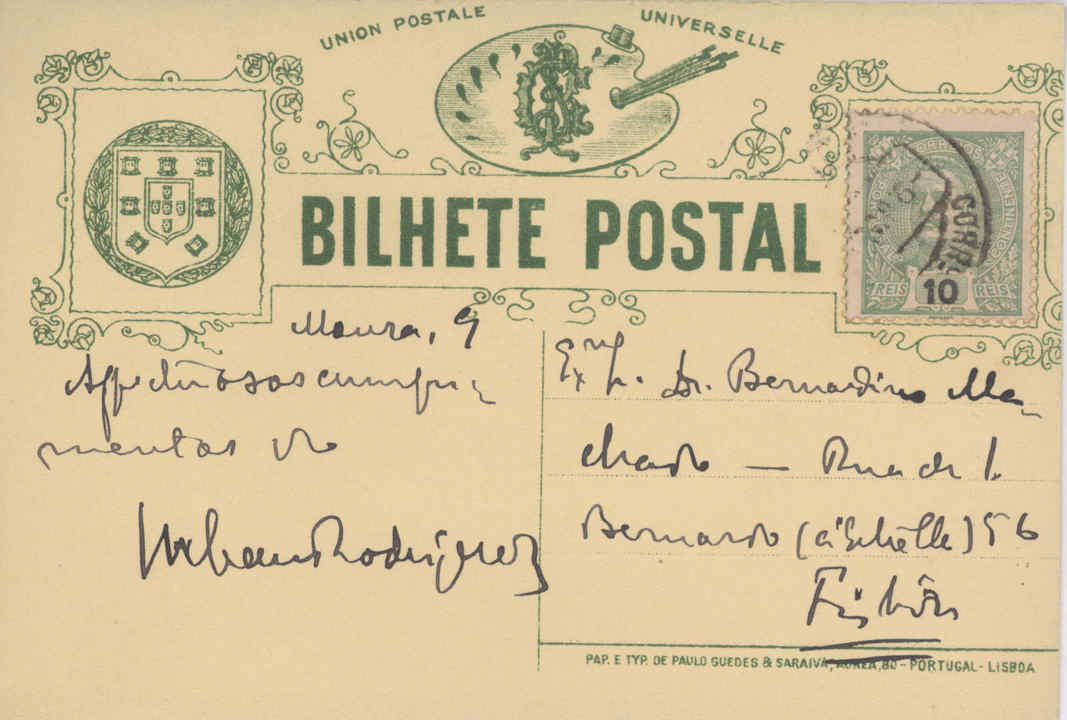 UNION POSTALE UNIVERSELLE
BILHETE POSTAL
CORR
REIS 10 REIS
Moura, 9
Affectuosos cumpri-
mentos do
Urbano Rodrigues
Exmo Sr. Dr. Bernardino Ma-
chado — Rua de S.
Bernardo (á Estrella) 56
Lisboa
PAP. E TYP. DE PAULO GUEDES & SARAIVA, AUREA, 80 - PORTUGAL - LISBOA